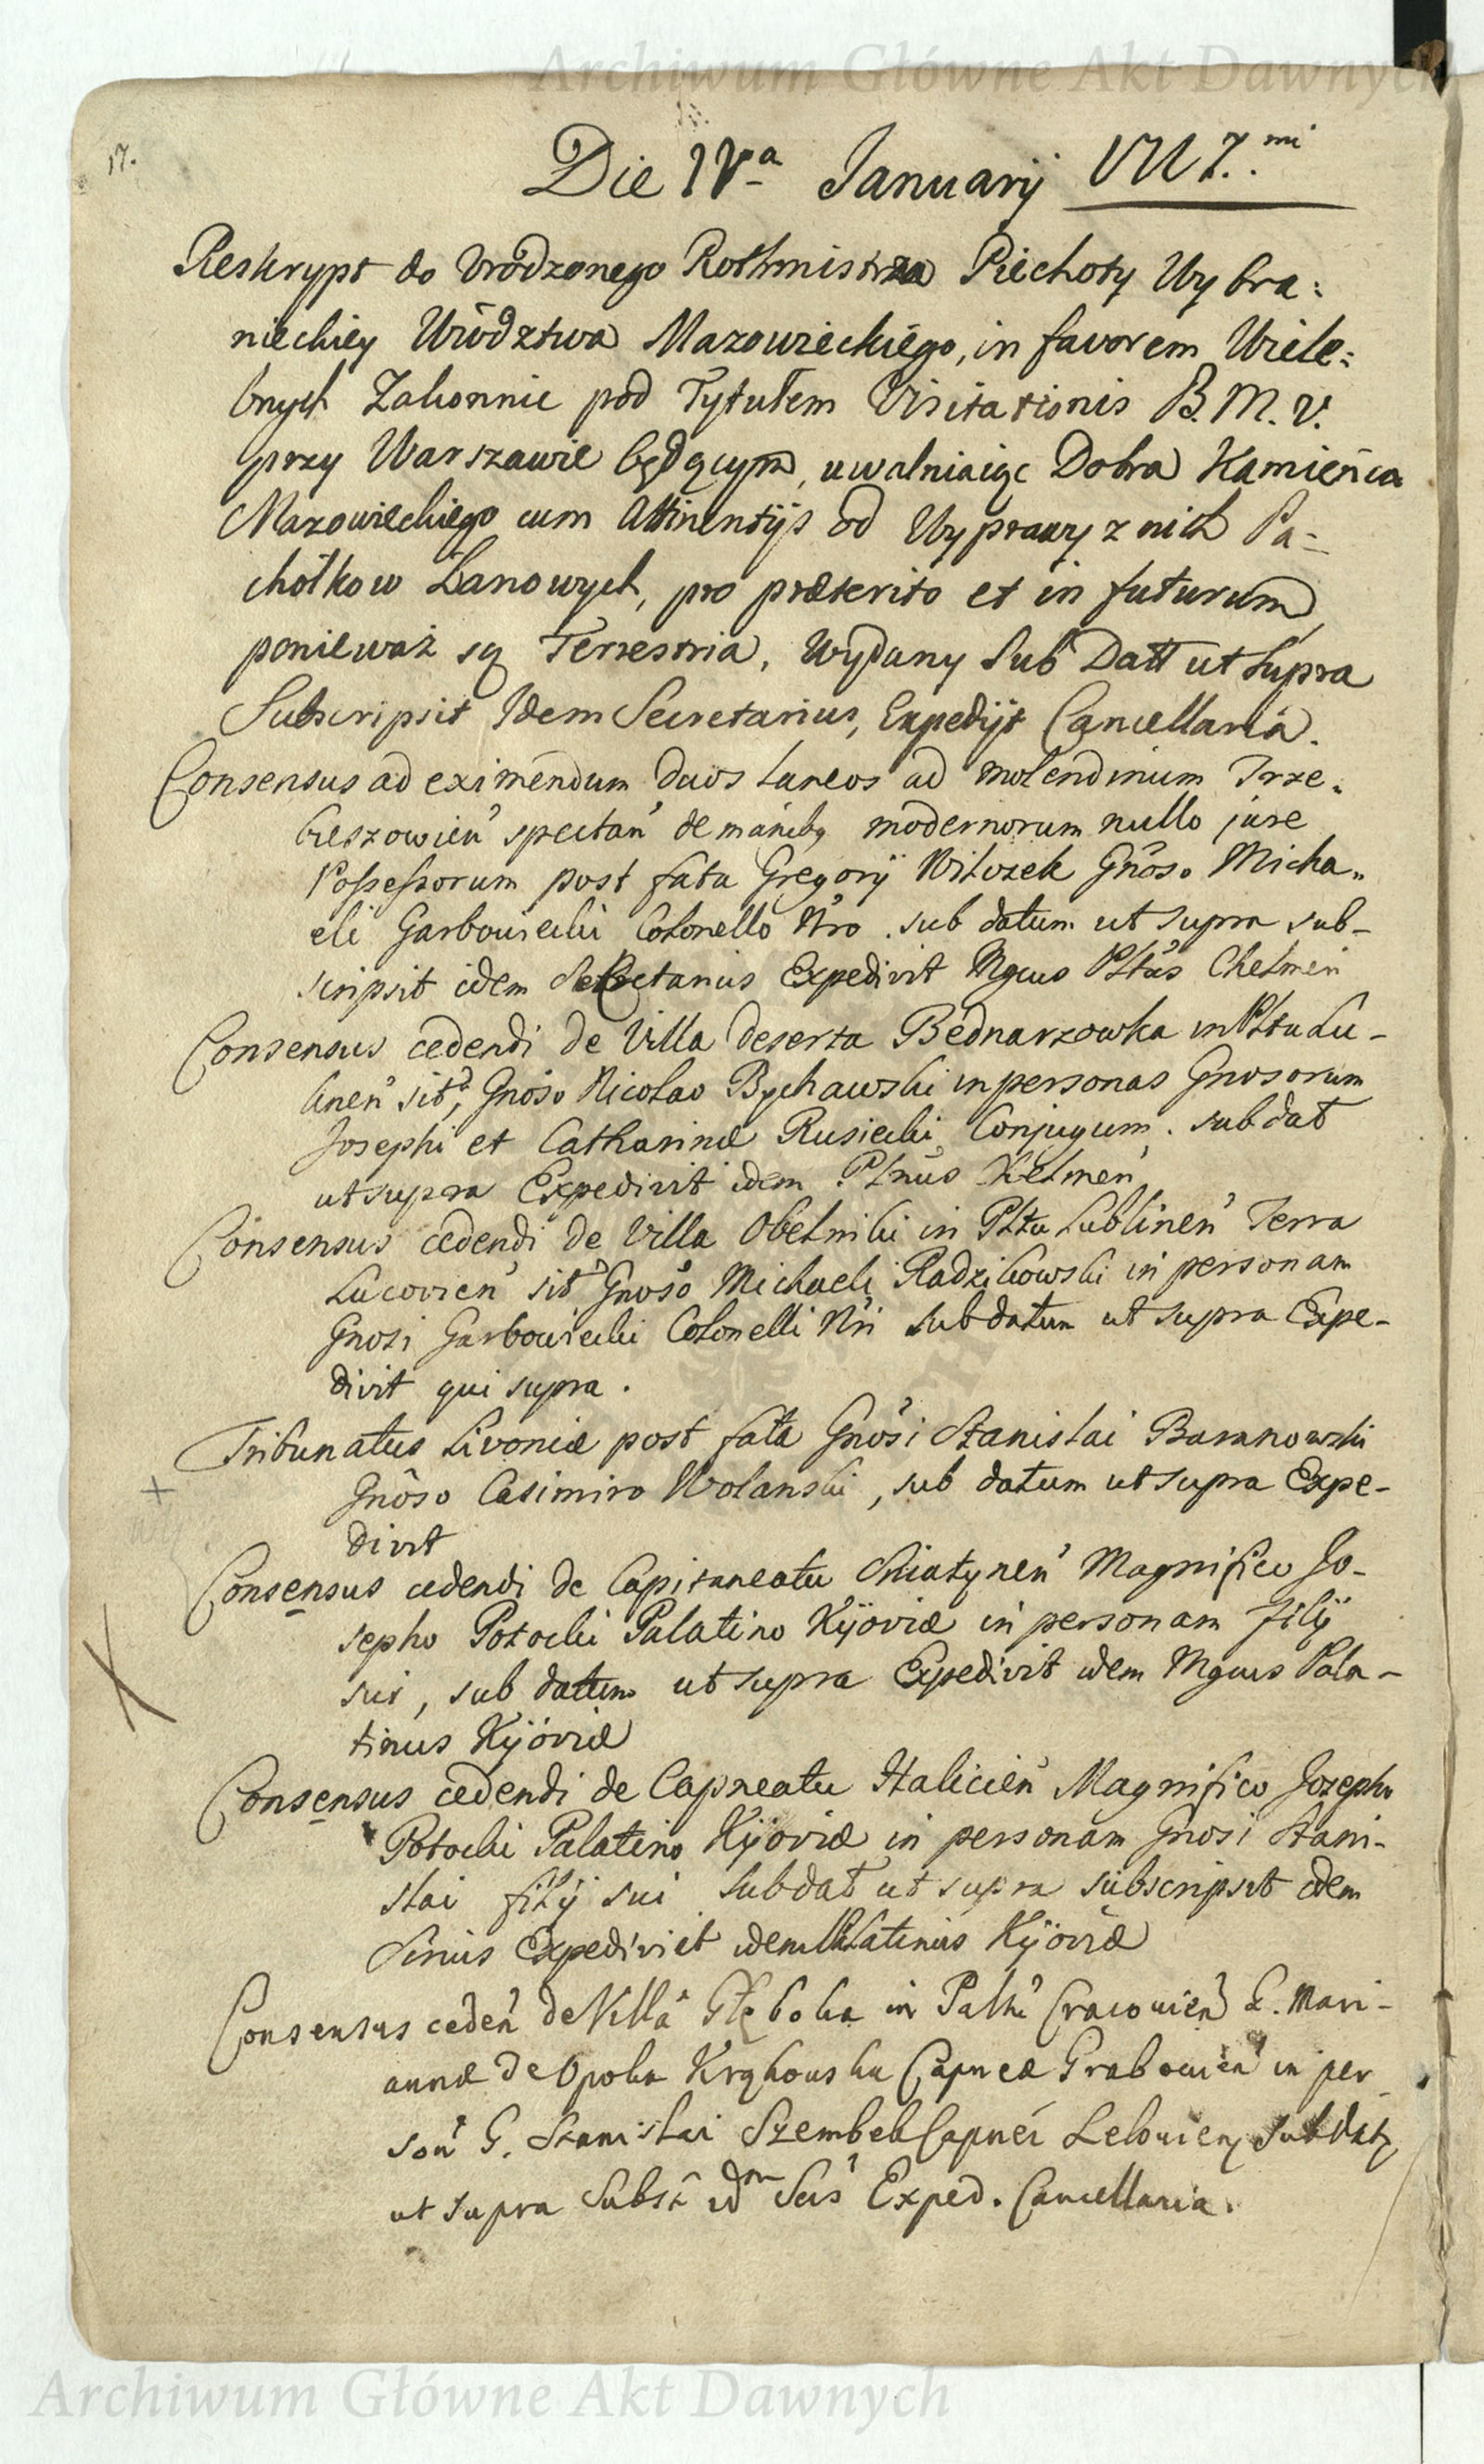 Archiwum Główne Akt Dawnych
17.
Die IVa Januarij
Reskrypt do Vrodzonego Rothmistrza Piechoty Wybra:
nieckiey Wdztwa Mazowieckiego, in favorem Wiele:
bnych Zakonnic pod Tytułem Visitationis B. M. V.
przy Warszawie będącym, uwalniaiąc Dobra Kamieńca
Mazowieckiego cum Attinentijs od Wyprawy z nich Pa=
chołkow Łanowych, pro præterito et in futurum
ponieważ są Terrestria, Wydany Sub Datt ut supra
Subscripsit Idem Secretarius, Expedijt Cancellaria.
Consensus ad eximendum duos laneos ad molendinum Trze„
bieszowień spectań de manibq modernorum nullo jure
Possessorum post fata Gregorij Witozek Gnoso Micha„
eli Garbowiecki Colonello Nro. sub datum ut supra sub-
scripsit idem Secretarius Expedivit Mgcus Pltus Chelmeń
Consensus cedendi de Villa deserta Bednarzowka in Pltu Lu-
blineń sit, Gnoso Nicolao Bychawski in personas Gnosorum
Josephi et Catharinæ Rusiecki Conjugum. sub dat
ut supra Expedivit idem Pltnus Chelmeń
Consensus cedendi de Villa Obelniki in Pltu Lublineń Terra
Lucovień sit Gnoso Michaeli Radzikowski in personam
Gnosi Garbowiecki Colonelli Nri sub datum ut supra Expe-
divit qui supra.
Tribunatus Livoniæ post fata Gnosi Stanislai Baranowski
Gnoso Casimiro Wolanski, sub datum ut supra Expe-
divit
Consensus cedendi de Capitaneatu Sniatyneń Magnifico Jo-
sepho Potocki Palatino Kijoviæ in personam filij
sui, sub datum ut supra Expedivit idem Mgcus Pala-
tinus Kijoviæ
Consensus cedendi de Capneatu Halicień Magnifico Josepho
Potocki Palatino Kijoviæ in personam Gnosi Stani-
slai filij sui sub dat ut supra subscripsit idem
Srius Expediviet idem Palatinus Kijoviæ
Consensus cedeń de Villa Głęboka in Palttu Cracovień G. Mari-
annæ de Opolka Krąkowska Capneæ Grabowień in per-
soń G. Stanislai Szembek Capnei Lelovień, sub dat,
ut supra Subst idm Scis Exped. Cancellaria.
Archiwum Główne Akt Dawnych